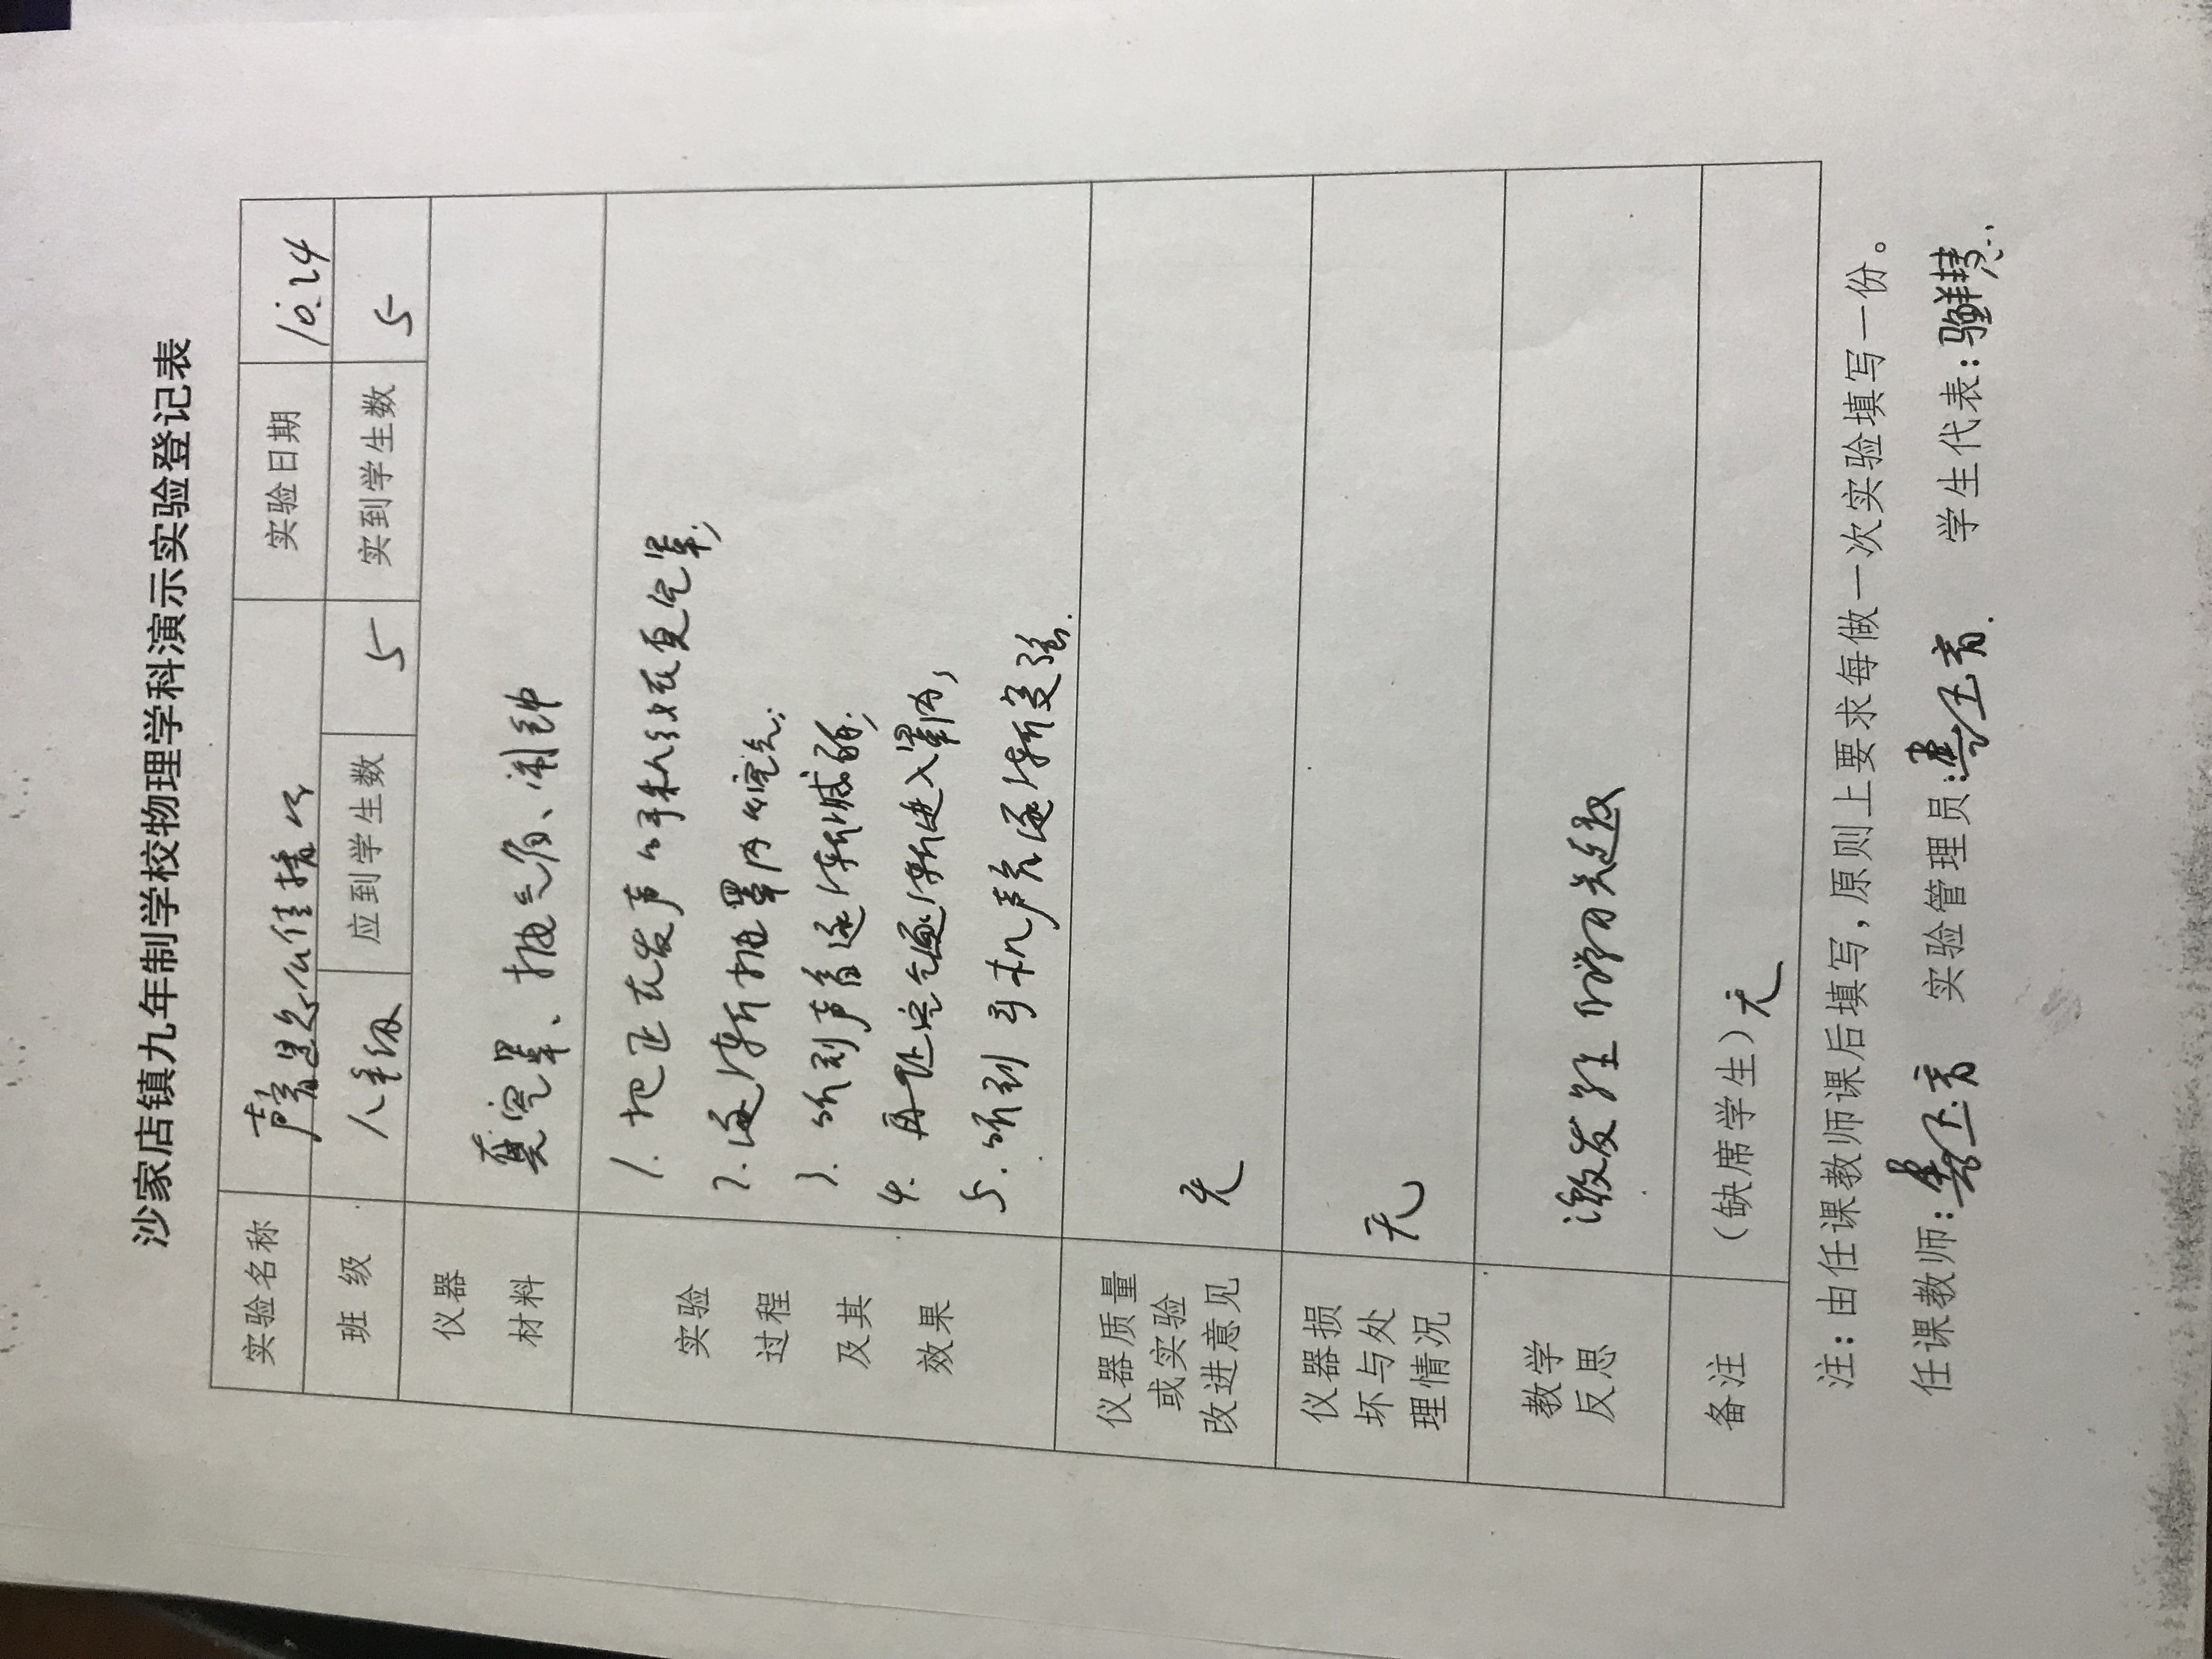 沙家店镇九年制学校物理学科演示实验登记表
实验名称 声音是怎么传播的 实验日期 10.24
班 级 八年级 应到学生数 5 实到学生数 5
仪器
材料
真空罩、抽气盘、闹钟
实验
过程
及其
效果
1. 把正在发声的手机放在真空罩;
2. 逐渐抽罩内的空气;
3. 听到声音逐渐减弱;
4. 再让空气逐渐进入罩内;
5. 听到手机声音逐渐变强.
仪器质量
或实验
改进意见
无
仪器损
坏与处
理情况
无
教学
反思
激发学生的学习兴趣
备注 (缺席学生) 无
注:由任课教师课后填写,原则上要求每做一次实验填写一份。
任课教师: 实验管理员: 学生代表: